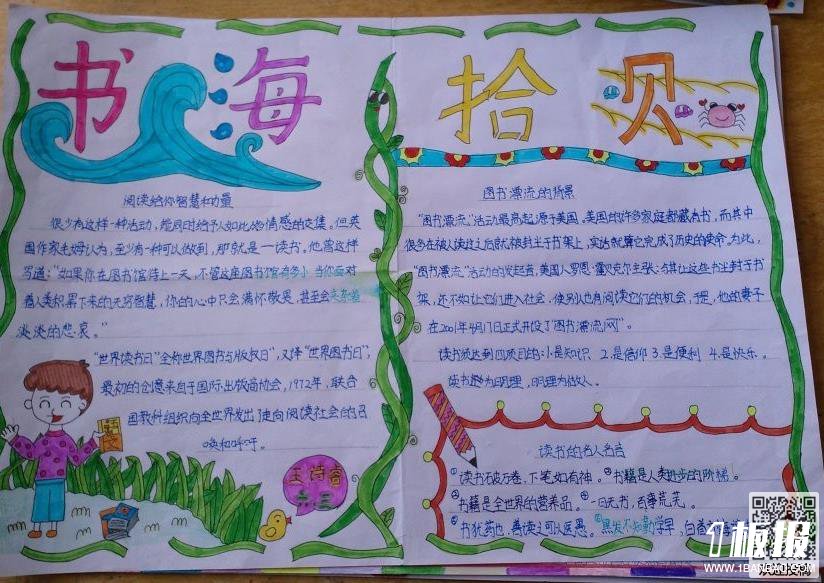 书海拾贝
阅读给你智慧和力量
很少有这样一种活动，能同时给予人如此多情感的交集。但英
国作家毛姆认为，至少有一种可以做到，那就是一读书。他曾这样
写道："如果你在图书馆待上一天，不管这座图书馆有多小，当你面对
着人类积累下来的无穷智慧，你的心中只会满怀敬畏，甚至会夹杂着
淡淡的悲哀。"
"世界读书日"全称世界图书与版权日"，又译"世界图书日"，
最初的创意来自于国际出版商协会，1972年，联合
国教科组织向全世界发出了走向阅读社会的召
唤和呼吁。
六三
图书漂流的背景
"图书漂流"活动最高起源于美国。美国的许多家庭都藏有书，而其中
很多在被人读过之后就被封尘于书架上，实话就算它完成了历史的使命。为此，
"图书漂流"活动的发起者，美国人罗恩·霍贝克尔主张：与其让这些书尘封于书
架，还不如让它们进入社会，使别也有阅读它们的机会，于是，他的妻子
在2001年4月17日正式开设了"图书漂流网"。
读书须达到四项目的：1.是知识 2.是信仰 3.是便利 4.是快乐。
读书为明理，明理为做人。
读书的名人名言
①读书破万卷，下笔如有神。②书籍是人类进步的阶梯。
③书籍是全世界的营养品。④一日无书，百事荒芜。
⑤书犹药也，善读之可以医愚。⑥黑发不知勤学早，白首
1板报
WWW.1BANBAO.COM